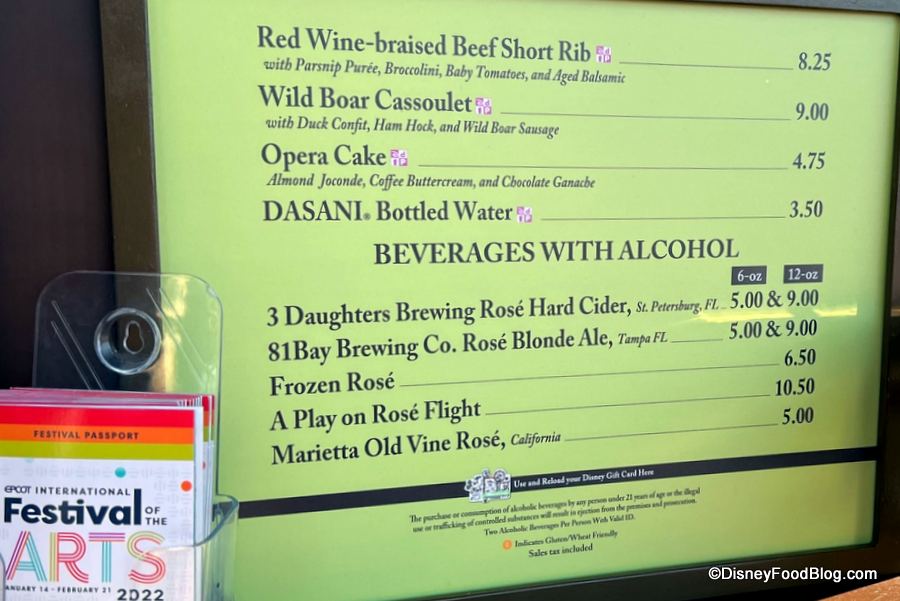 Red Wine-braised Beef Short Rib 8.25
with Parsnip Purée, Broccolini, Baby Tomatoes, and Aged Balsamic
Wild Boar Cassoulet 9.00
with Duck Confit, Ham Hock, and Wild Boar Sausage
Opera Cake 4.75
Almond Joconde, Coffee Buttercream, and Chocolate Ganache
DASANI® Bottled Water 3.50
BEVERAGES WITH ALCOHOL
6-oz 12-oz
3 Daughters Brewing Rosé Hard Cider, St. Petersburg, FL 5.00 & 9.00
81Bay Brewing Co. Rosé Blonde Ale, Tampa FL 5.00 & 9.00
Frozen Rosé 6.50
A Play on Rosé Flight 10.50
Marietta Old Vine Rosé, California 5.00
Use and Reload your Disney Gift Card Here
The purchase or consumption of alcoholic beverages by any person under 21 years of age or the illegal
use or trafficking of controlled substances will result in ejection from the premises and prosecution.
Two Alcoholic Beverages Per Person With Valid ID.
Indicates Gluten/Wheat Friendly
Sales tax included
FESTIVAL PASSPORT
EPCOT INTERNATIONAL
Festival OF THE
ARTS
ANUARY 14 - FEBRUARY 21 2022
©DisneyFoodBlog.com